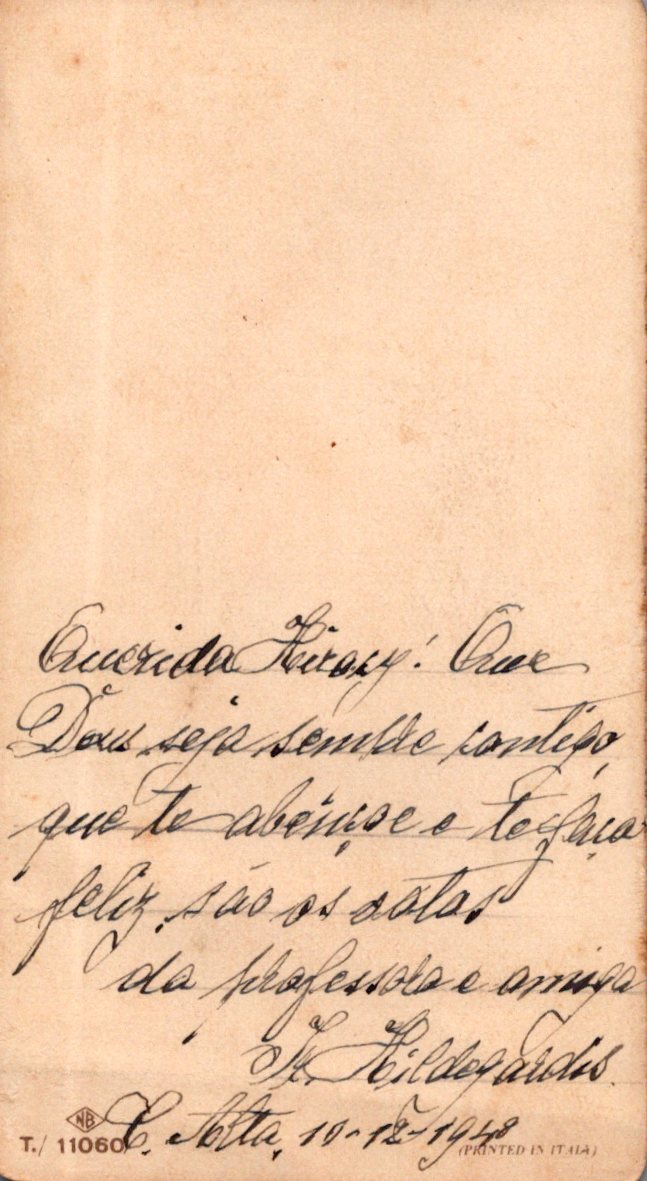 Querida Hiracy! Que
Deus seja sempre contigo,
que te abênçoe e te faça
feliz, são os votos
da professora e amiga
Ir. Hildegardis.
C. Alta, 10-12-1948
NB
T./ 11060
(PRINTED IN ITALY)